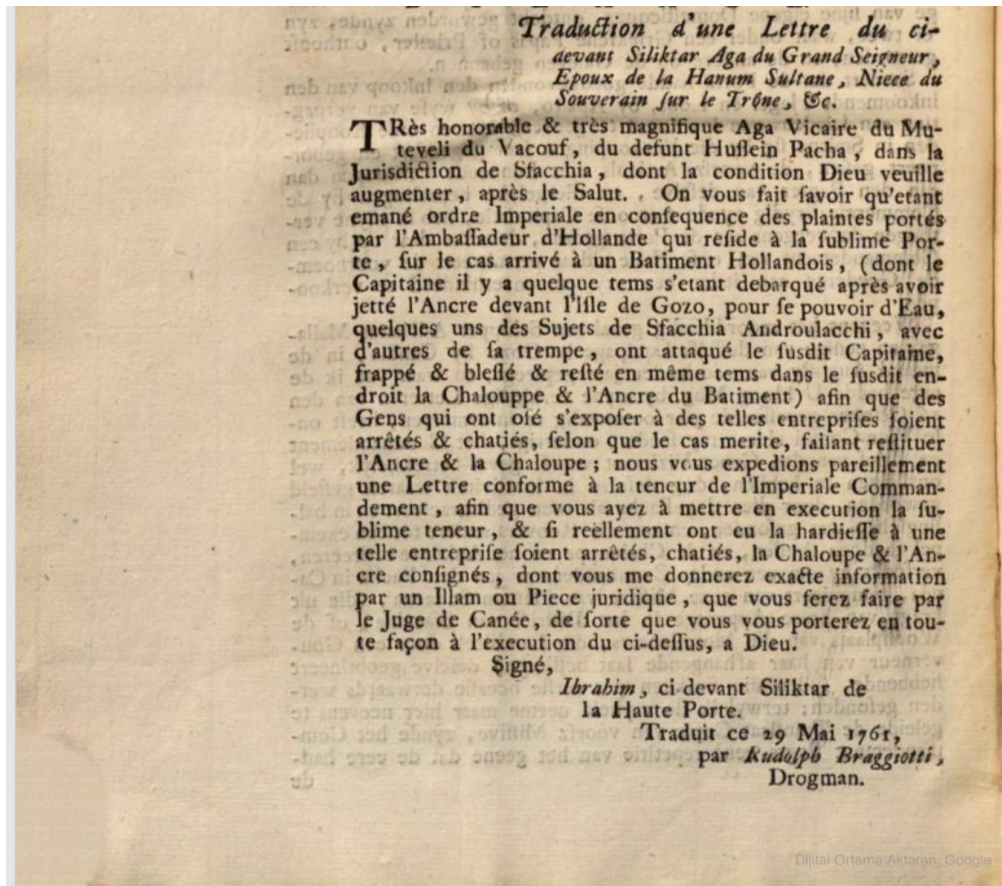 Traduction d'une Lettre du ci-
devant Siliktar Aga du Grand Seigneur,
Epoux de la Hanum Sultane, Niece du
Souverain ſur le Trône, &c.
TRès honorable & très magnifique Aga Vicaire du Mu-
teveli du Vacouf, du defunt Huſſein Pacha, dans la
Jurisdiction de Sfacchia, dont la condition Dieu veuille
augmenter, après le Salut. On vous fait ſavoir qu'etant
emané ordre Imperiale en conſequence des plaintes portés
par l'Ambaſſadeur d'Hollande qui reſide à la ſublime Por-
te, ſur le cas arrivé à un Batiment Hollandois, (dont le
Capitaine il y a quelque tems s'etant debarqué après avoir
jetté l'Ancre devant l'Iſle de Gozo, pour ſe pouvoir d'Eau,
quelques uns des Sujets de Sfacchia Androulacchi, avec
d'autres de ſa trempe, ont attaqué le ſusdit Capitaine,
frappé & bleſſé & reſté en même tems dans le ſusdit en-
droit la Chalouppe & l'Ancre du Batiment) afin que des
Gens qui ont oſé s'expoſer à des telles entrepriſes ſoient
arrêtés & chatiés, ſelon que le cas merite, faiſant reſtituer
l'Ancre & la Chaloupe; nous vous expedions pareillement
une Lettre conforme à la teneur de l'Imperiale Comman-
dement, afin que vous ayez à mettre en execution la ſu-
blime teneur, & ſi reëllement ont eu la hardieſſe à une
telle entrepriſe ſoient arrêtés, chatiés, la Chaloupe & l'An-
cre conſignés, dont vous me donnerez exacte information
par un Illam ou Piece juridique, que vous ferez faire par
le Juge de Canée, de ſorte que vous vous porterez en tou-
te façon à l'execution du ci-deſſus, a Dieu.
Signé,
Ibrahim, ci devant Siliktar de
la Haute Porte.
Traduit ce 29 Mai 1761,
par Rudolph Braggiotti,
Drogman.
de
Dijital Ortama Aktaran: Google